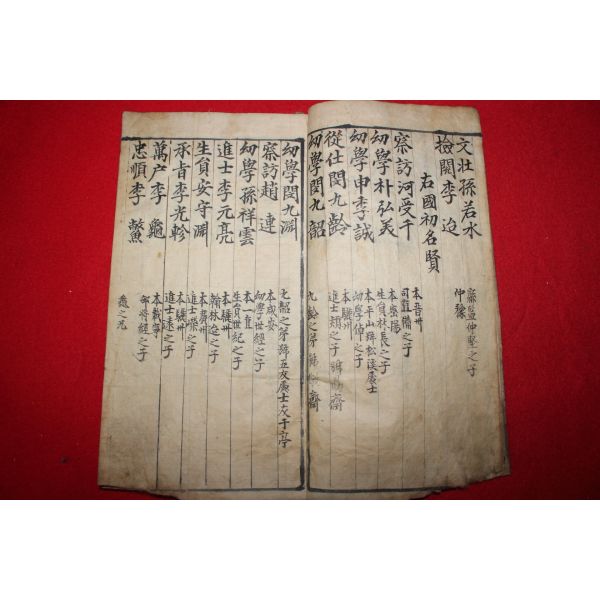 文壯孫若水
縣監仲堅之子
檢閱李迨
仲豫
右國初名賢
察訪河受千
本晋州
司直備之子
幼學朴弘美
本密陽
生員林長之子
幼學申季誠
本平山號松溪處士
幼學倬之子
從仕閔九齡
本驪州
進士頖之子
幼學閔九韶
九齡之弟
幼學閔九淵
九韶之弟號五友處士友于亭
察訪趙連
本咸安
幼學世經之子
幼學孫祥雲
本一直
生員世紀之子
進士李元亮
本驪州
翰林迨之子
生員安守淵
本廣州
進士嶸之子
承旨李光軫
本驪州
進士遠之子
萬户李龜
本載寧
部將經之子
忠順李鰲
龜之兄